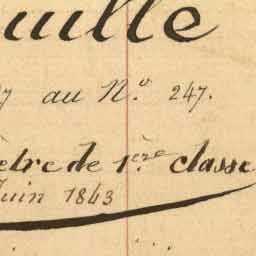 uille
7 au N.º 247.
ètre de 1ère classe
Juin 1843